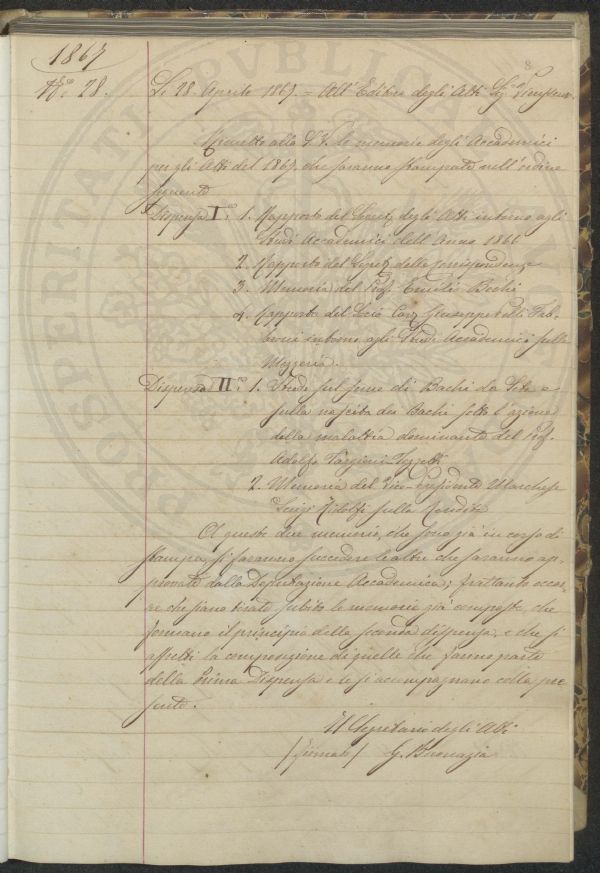 1867
8
N.o 28. Li 28. Aprile 1867. = All' Editore degli Atti Sig.
Rimetto alla S. V. le memorie degli Accademici
per gli Atti del 1867, che saranno stampate nell' ordine
seguente
Dispensa I: 1. Rapporto del Segret. degli Atti intorno agli
Studi Accademici dell' Anno 1866
2. Rapporto del Segret. delle corrispondenze
3. Memoria del Prof. Emilio Bechi
4. Rapporto del Socio Cav. Giuseppe Fab-
intorno agli Studi Accademici sulla
Mezzeria.
Dispensa II: 1. Studi sul seme di Bachi da Seta e
sulla nascita dei Bachi sotto l'azione
della malattia dominante del Prof.
Adolfo Targioni-Tozzetti
2. Memoria del Vice-Presidente Marchese
Luigi Ridolfi sulla Rendita
A queste due memorie, che sono già in corso di
stampa, si faranno succedere le altre che saranno ap-
provate dalla Deputazione Accademica; frattanto occor-
re che siano tirate subito le memorie già composte, che
formano il principio della seconda dispensa, e che si
affretti la composizione di quelle che fanno parte
della Prima Dispensa e le si accompagnano colla pre
sente.
Il Segretario degli Atti
/firmato/ G. Buonazia
PROSPERITATI PUBLICAE